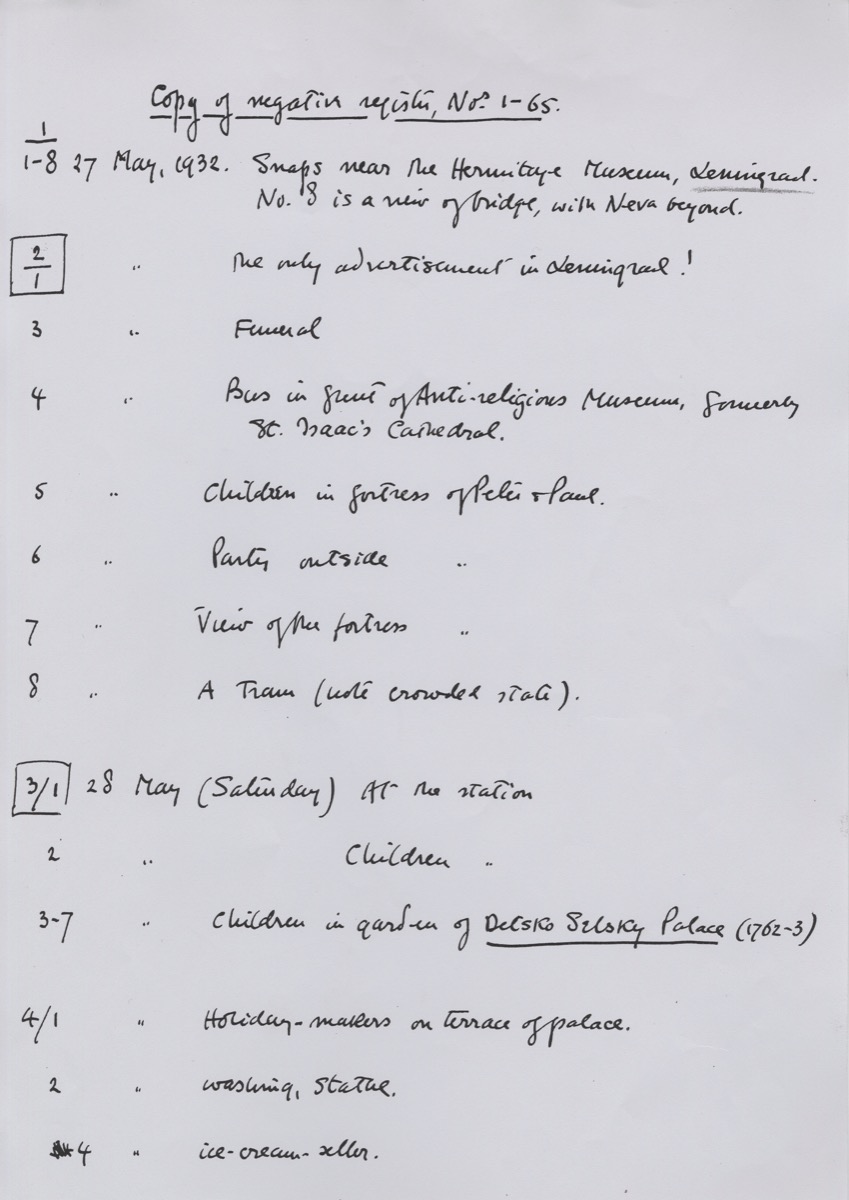 Copy of negative register, Nos. 1-65.
1
1-8 27 May, 1932. Snaps near the Hermitage Museum, Leningrad.
No. 8 is a view of bridge, with Neva beyond.
2
1 " The only advertisement in Leningrad!
3 " Funeral
4 " Bus in front of Anti-religious Museum, formerly
St. Isaac's Cathedral.
5 " Children in fortress of Peter & Paul.
6 " Party outside "
7 " View of the fortress "
8 " A Tram (note crowded state).
3/1 28 May (Saturday) At the station
2 " Children "
3-7 " Children in garden of Detsko Selsky Palace (1762-3)
4/1 " Holiday-makers on terrace of palace.
2 " washing, statue.
4 " ice-cream-seller.